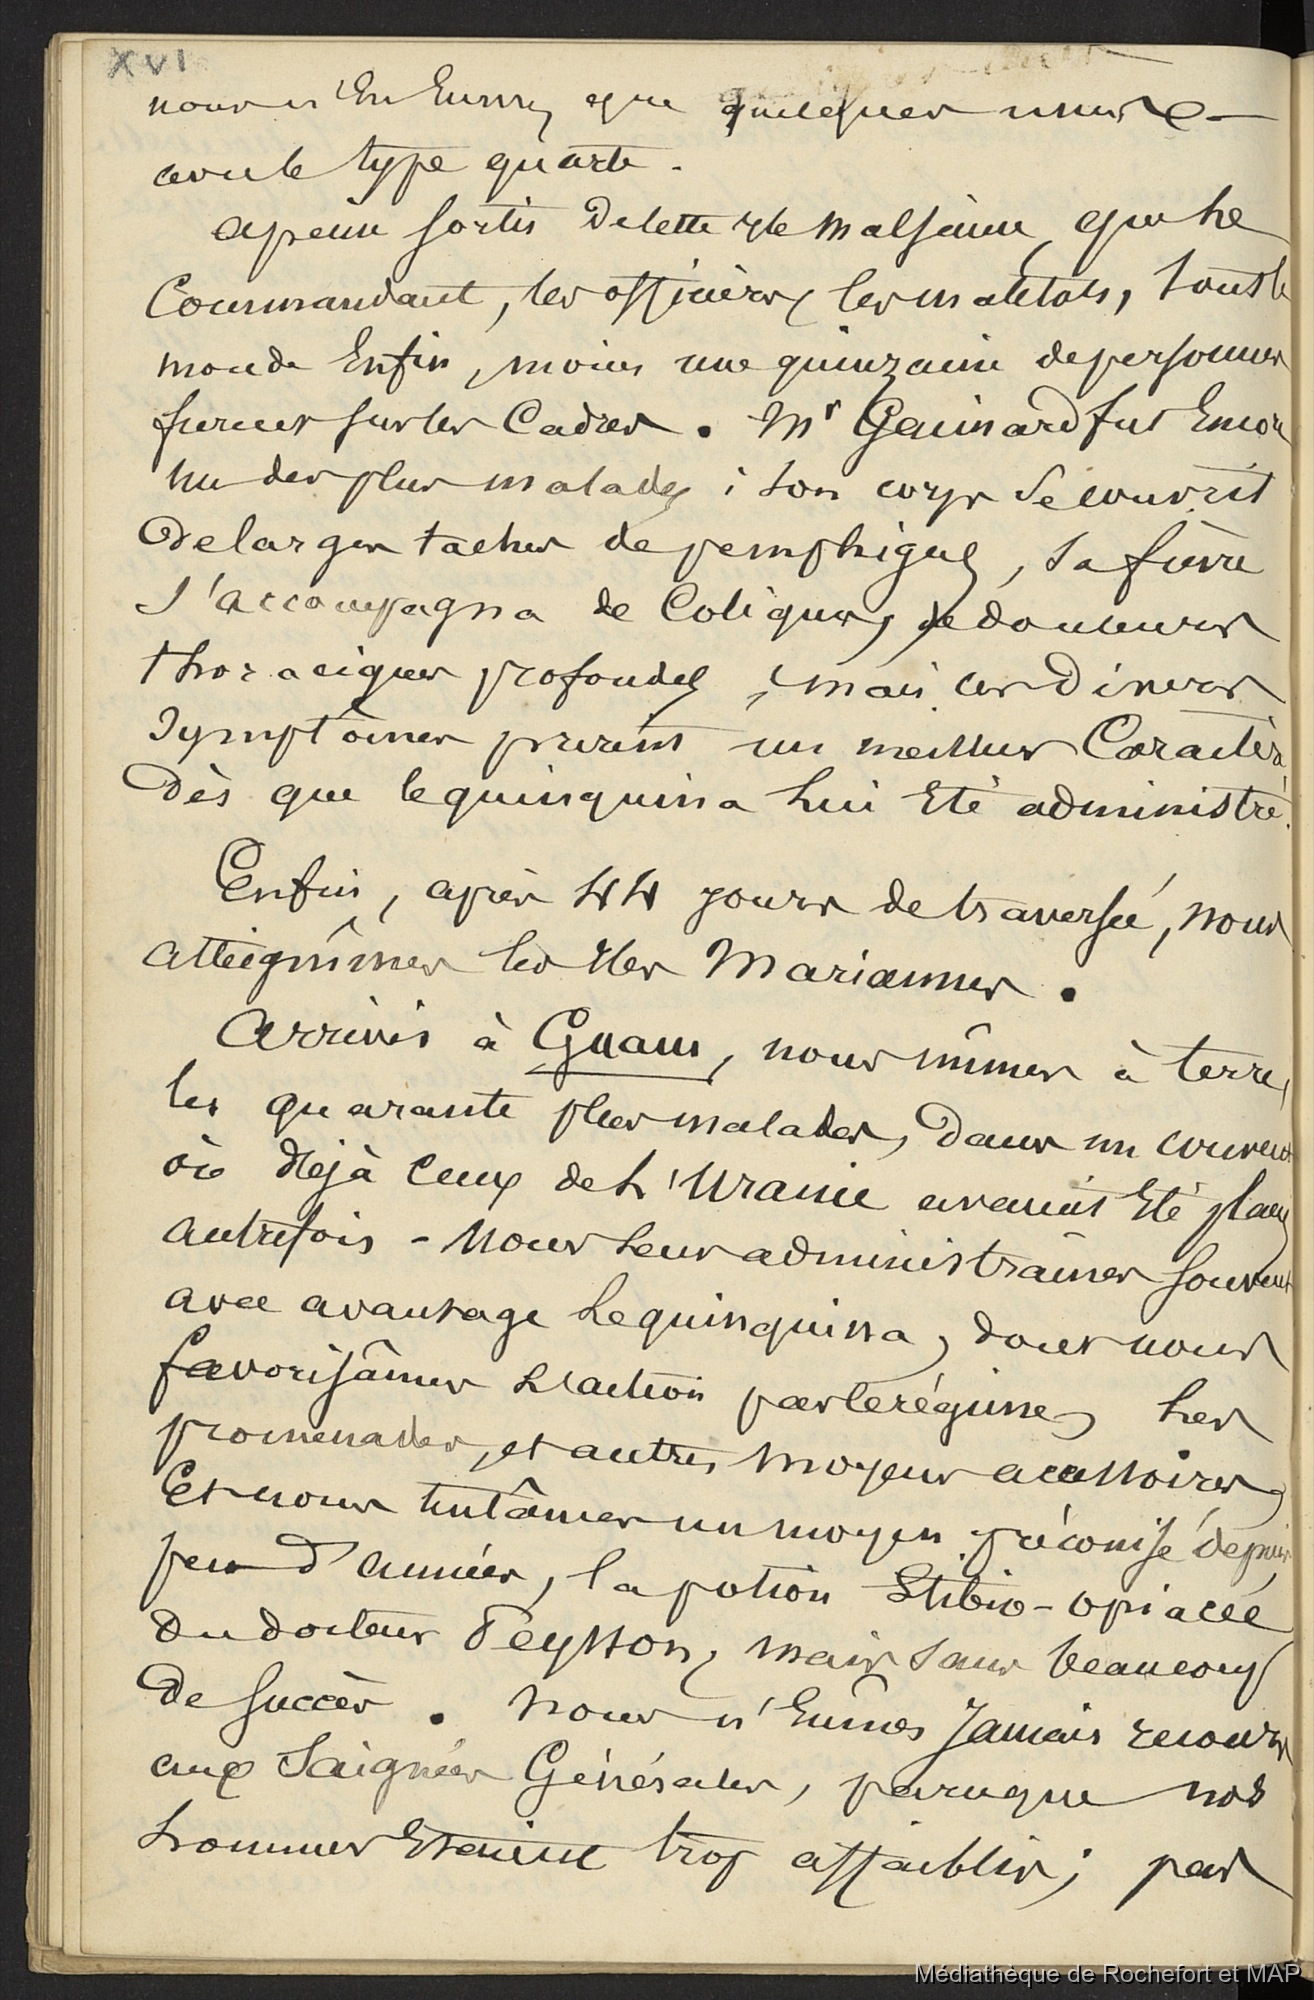 XVI
nous n'En Eumes que quelques unes
avec le type quarte.
apeine sortis de cette ile malsaine, que le
Commandant, les officiers, les matelots, tout le
monde Enfin, moins une quinzaine de personnes
furent sur les Cadres. Mr Gaimard fut Encore
un des plus malades ; son corps se couvrit
de larges taches de pemphigus, sa fièvre
s'accompagna de Coliques, de douleurs
thoraciques profondes, mais ces divers
Symptômes prirent un meilleur Caractère
Dès que le quinquina lui Eté administré.
Enfin, après 44 jours de traversée, nous
atteignîmes les Iles Mariannes.
Arrivés à Guam, nous mîmes à terre,
les quarante plus malades, dans un couvent
où déjà ceux de L'Uranie avaient Eté placés
autrefois - Nous leur administrâmes souvent
avec avantage le quinquina, dont nous
favorisâmes L'action par le régime, les
promenades, et autres moyens accessoires,
Et nous tentâmes un moyen préconisé depuis
peu d'années, la potion Stibio-opiacée
du docteur Peysson, mais sans beaucoup
de succès. Nous n'Eûmes Jamais recours
aux Saignées Générales, parce que nos
hommes Etaient trop affaiblis ; par
Médiathèque de Rochefort et MAP